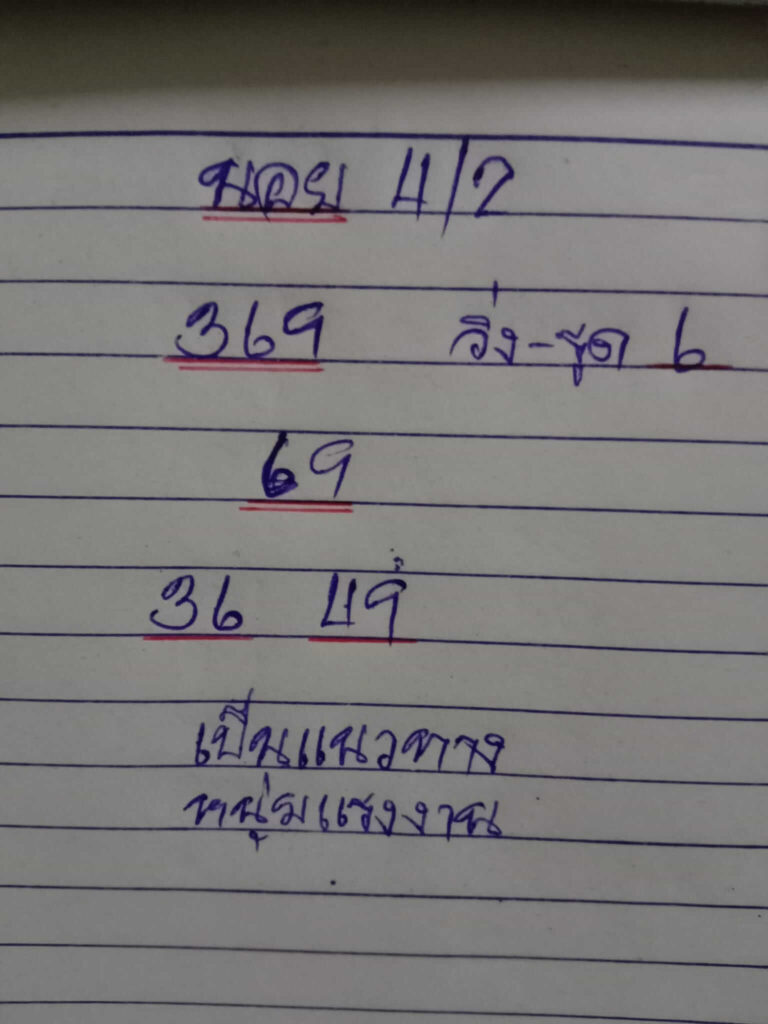 นอย 4/2
369 วิ่ง-รูด 6
69
36 49
เป็นแนวทาง
หนุ่มแรงงาน